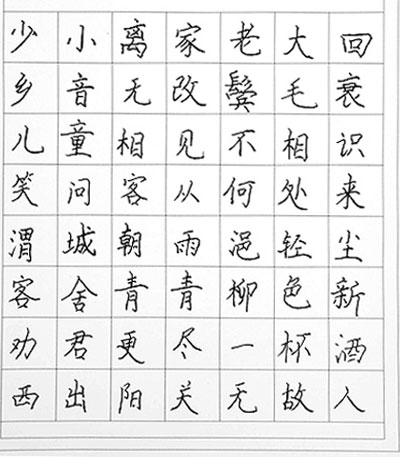 少小离家老大回
乡音无改鬓毛衰
儿童相见不相识
笑问客从何处来
渭城朝雨浥轻尘
客舍青青柳色新
劝君更尽一杯酒
西出阳关无故人